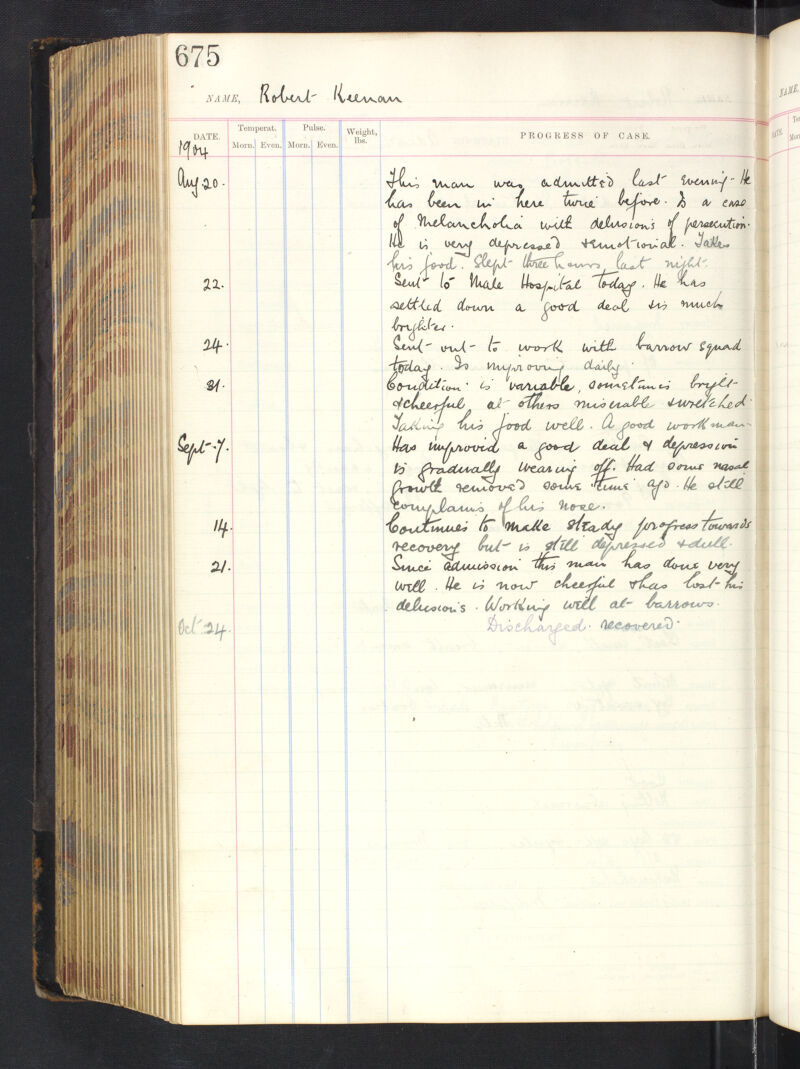 675
NAME, Robert Keenan
DATE. Temperat. Pulse. Weight, lbs. PROGRESS OF CASE.
Morn. Even. Morn. Even.
1904
Aug 20. This man was admitted last evening - He
has been in here twice before. Is a case
of Melancholia with delusions of persecution.
He is very depressed & emotional. Takes
his food. Slept three hours last night.
22. Sent to Male Hospital today. He has
settled down a good deal & is much
brighter.
24. Sent out to work with barrow squad
today. Is improving daily.
31. Condition is variable, sometimes bright
& cheerful, at others miserable & wretched
Taking his food well. A good workman
Sept. 7. Has improved a good deal & depression
is gradually wearing off. Had some nasal
growth removed some time ago. He still
complains of his nose.
14. Continues to make steady progress towards
recovery but is still depressed & dull.
21. Since admission this man has done very
well. He is now cheerful & has lost his
delusions. Working well at barrows.
Oct 24. Discharged recovered.
NAME,
DATE.
Morn